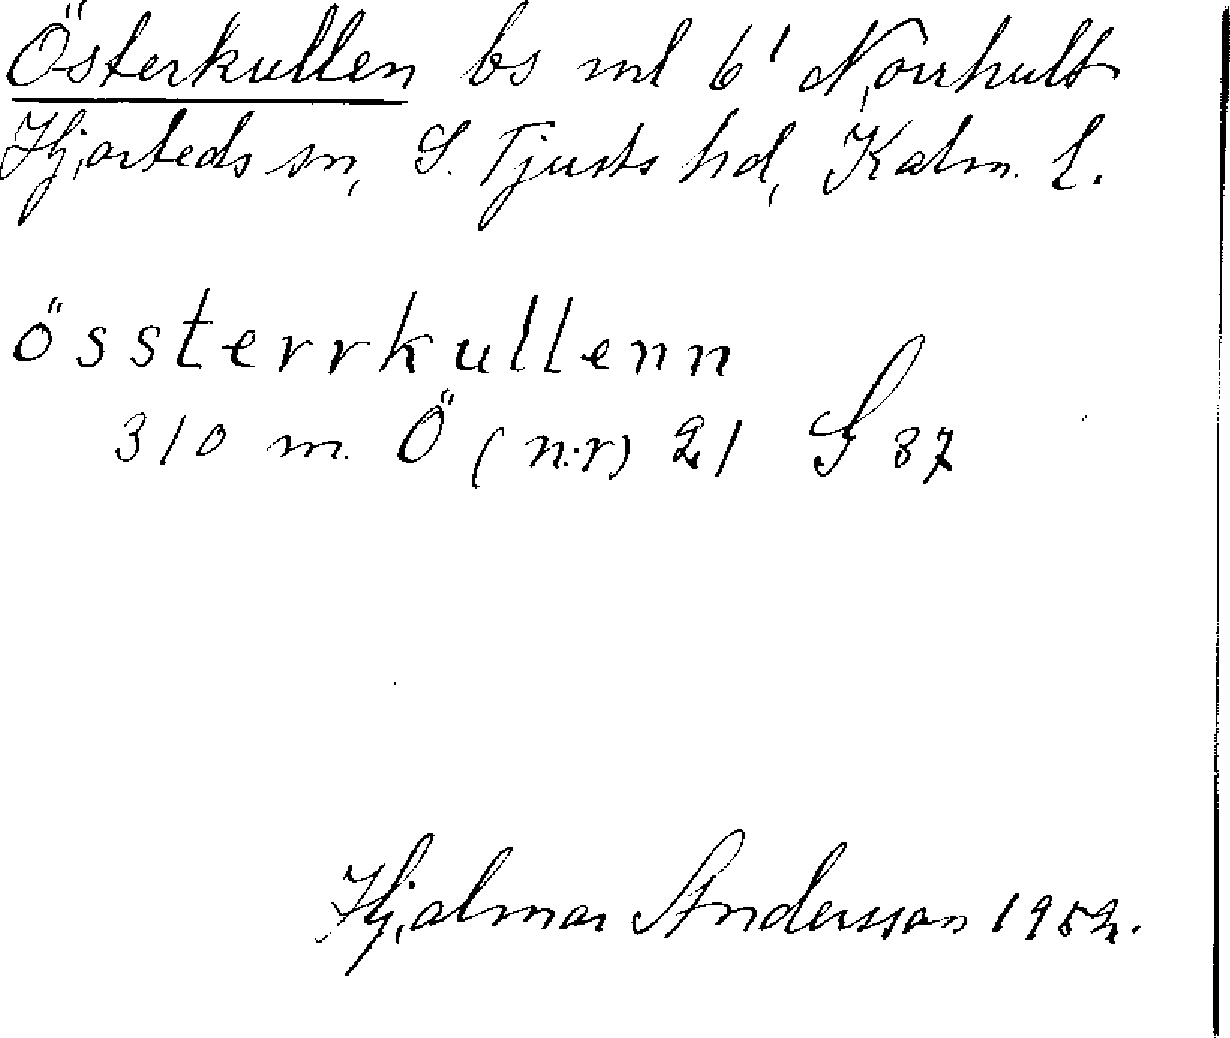 Österkullen bs ml 6¹ Norrhult
Hjorteds sn, S. Tjusts hd, Kalm. l.
össterrkullenn
310 m. Ö (n.r) 21 S 87
Hjalmar Andersson 1952.